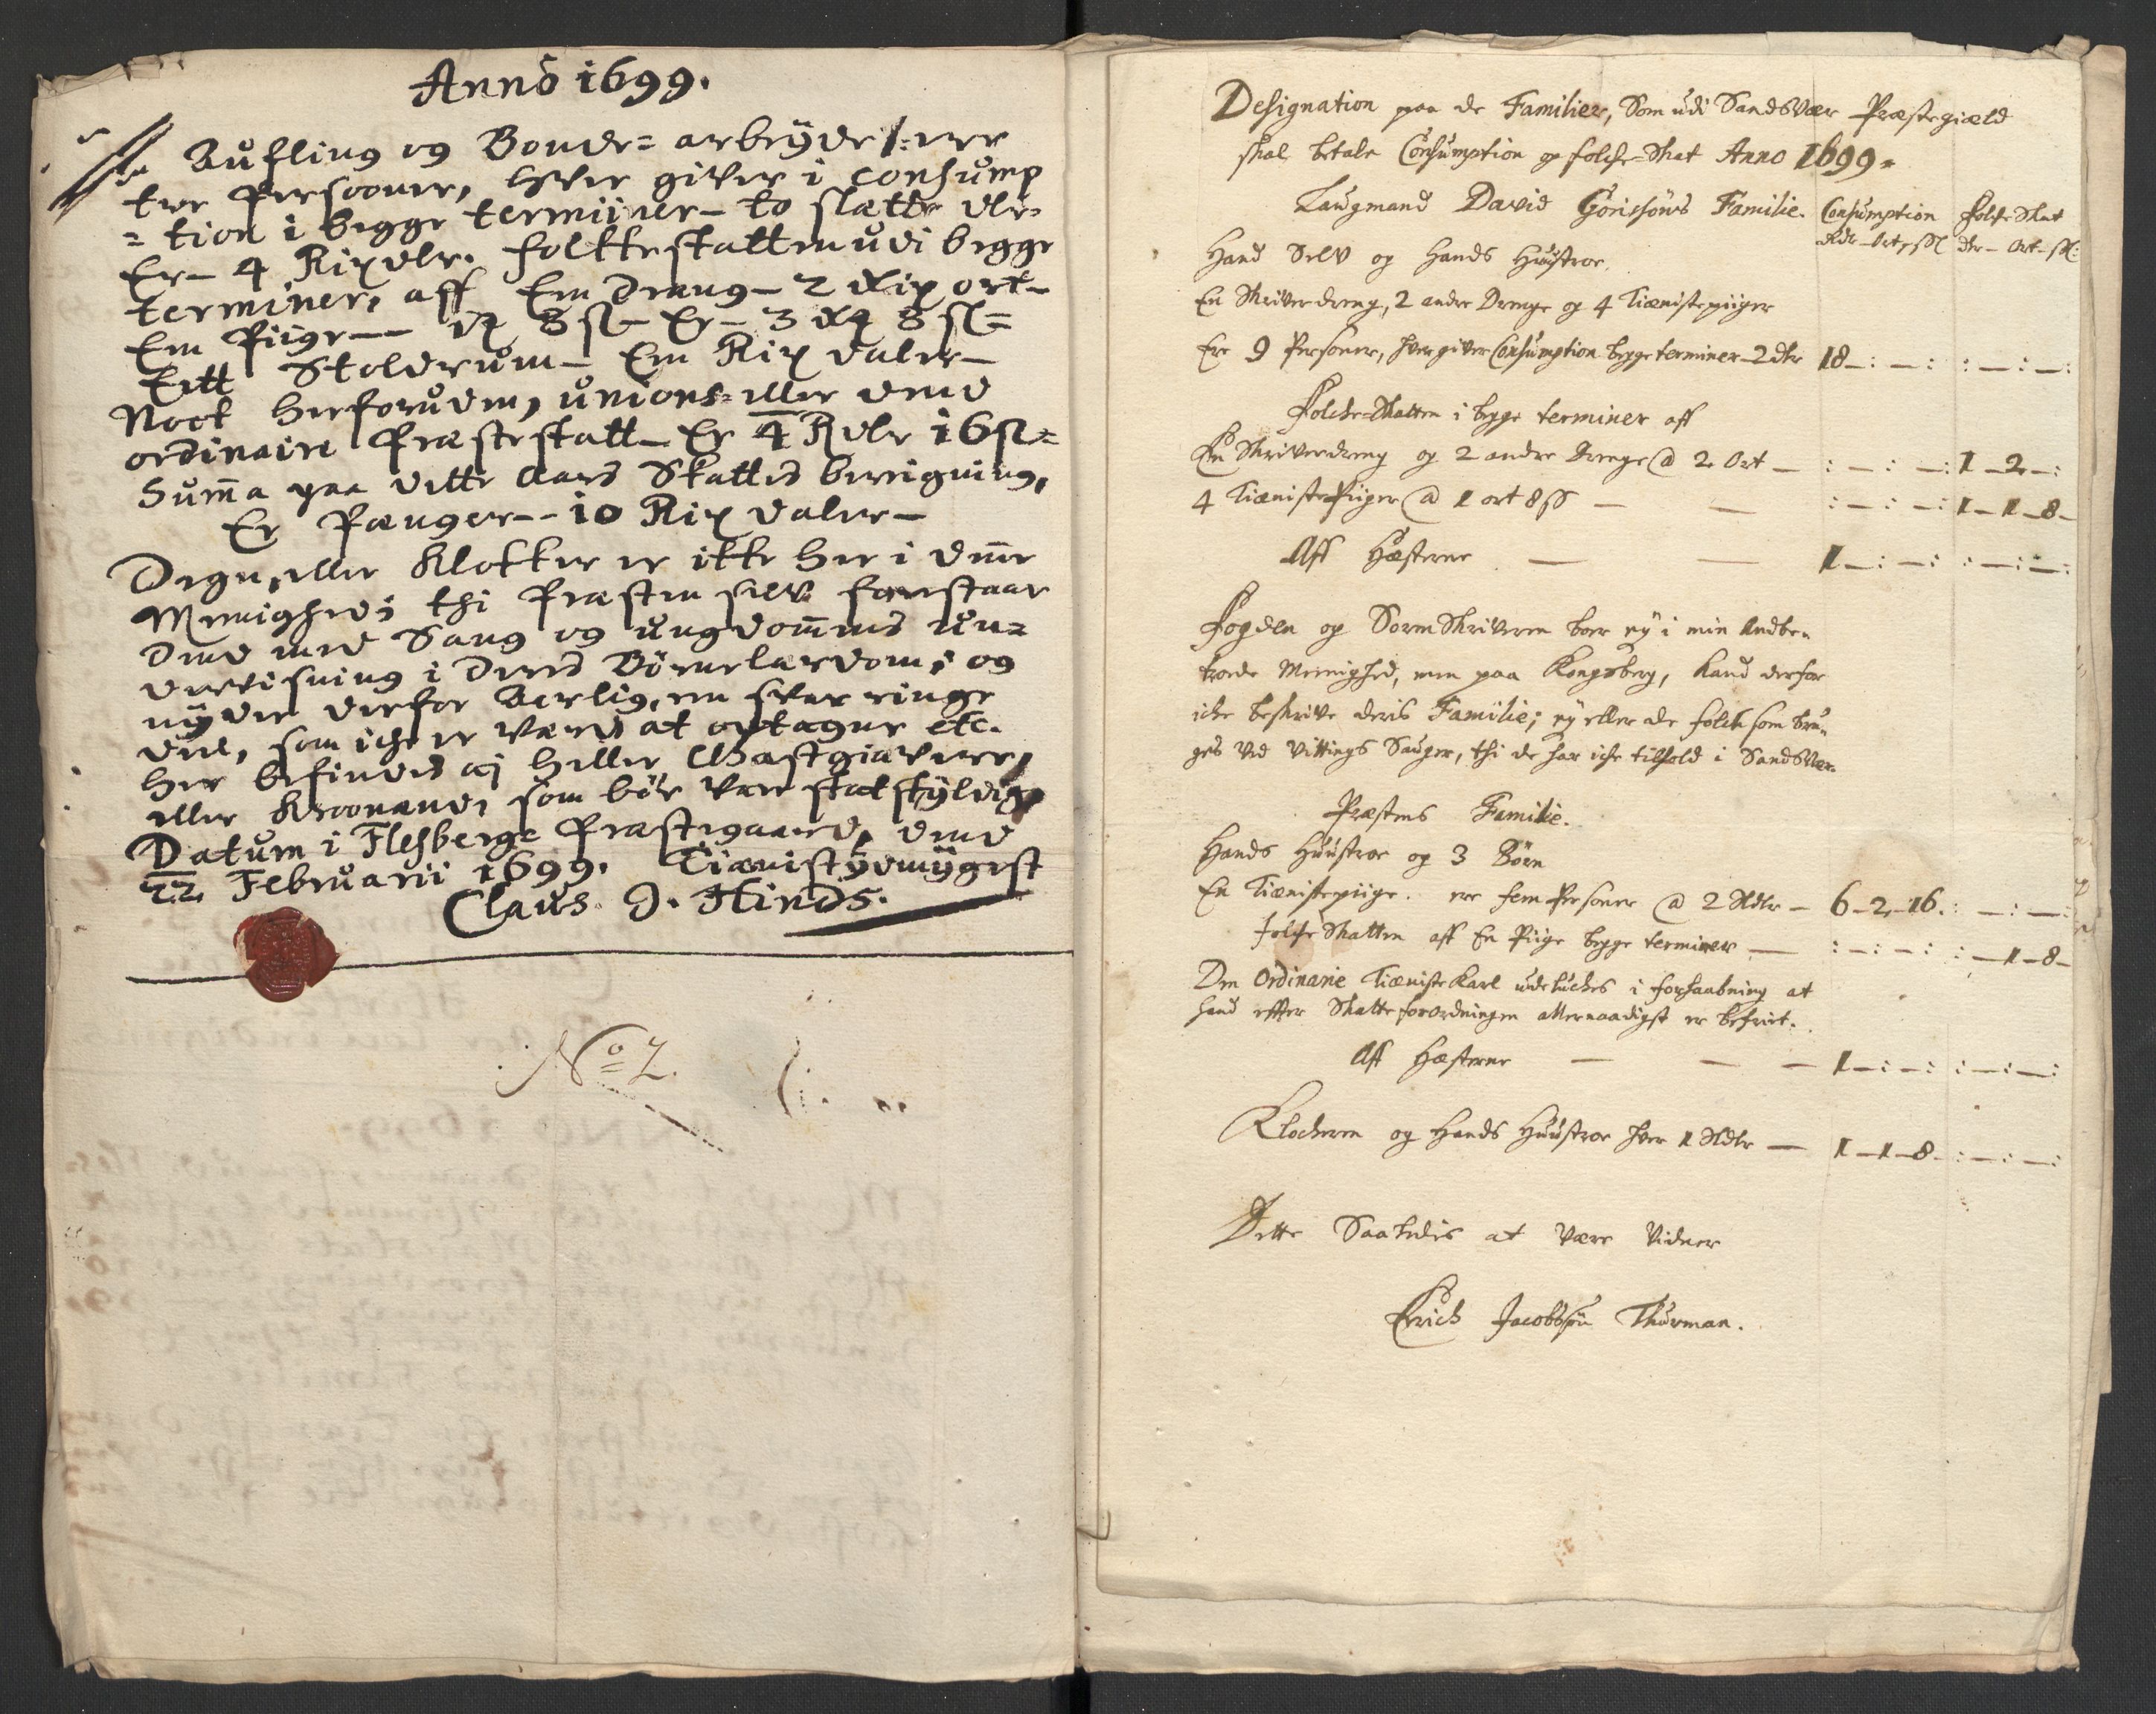 Anno 1699.
Aufling og Bonde= arbeyde /: ere
tre Persooner, hver giver i consump
=tion i begge terminer – to slætte dlr=
Er – 4 Rixdlr. Folkeskatten udi begge
terminer, aff Een dreng – 2 Rix ort –
Een Piige –– 8 sl – Er – 3 8 sl=
Eitt Stolderum – Een Rix daler –
Nock herforuden, unions= eller dend
ordinaire Præsteskatt – Er 4 Rdlr 16 sl=
Summa paa dette Aars Skattes beregning,
Er Penger –– 10 Rix daler –
Degn, eller Klokker er ikke her i denne
Menighed; thi Præsten selv forestaar
dend med Sang og ungdommens un=
dervisning i deres Børnelærdom; og
nyder derfor Aarlig, en svær ringe
deel, som ichе er værd at optagne etc.
her befindes ej heller Giæstgiævere,
eller Kroomænd, som bør være skatskyldige
Datum i Flesberge Præstegaard, dend
22 Februarii 1699. Tienistydmygest
Claus J. Hinds.
No 2.
Designation paa de Familier, Som udi Sandsvær Præstegield
skal betale Consumption og folche-Skat Anno 1699=
Laugmand David Görissöns Familie. Consumption Folche Skat
Rdr – Ort – sl dlr – Ort – sl:
Hand Selv og Hands Huustroe.
En Skriverdreng, 2 andre Drenge og 4 Tienistepiiger
Ere 9 Personer, hver giver Consumption begge terminer – 2 dlr 18 –:–: :–:–:
Folche=Skatten i begge terminer aff
En Skriverdreng og 2 andre Drenge @ 2 Ort – :–:–: 1–2–:
4 Tieniste Piiger @ 1 ort 8 sl – – :–:–: 1–1–8–
Aff Hæsterne – – 1–:–: :–:–:
Fogden og SorenSkriveren boer ey i min Anbe=
troede Meenighed, men paa Kongsberg, kand derfor
iche beskrive deris Familie; ey eller de folch som bru=
ges ved Vittings Sauger, thi de har iche tilhold i Sandsvær.
Præstens Familie.
Hands Huustroe og 3 Börn
En Tienistepiige. ere fem Personer @ 2 Sldlr – 6–2–16. :–:–:
folcheSkatten aff En Piige begge terminer – :–:–: :–1–8–
Den Ordinarie TienisteKarl udeluches i forhaabning at
hand effter Skatteforordningen allernaadigst er befriet.
Aff Hæsterne – – – 1–:–: :–:–:
Klocheren og Hands Huustroe hver 1 Sldlr – 1–1–8– :–:–:
Dette Saaledis at være vidner
Erich Jacobssøn Thurman.